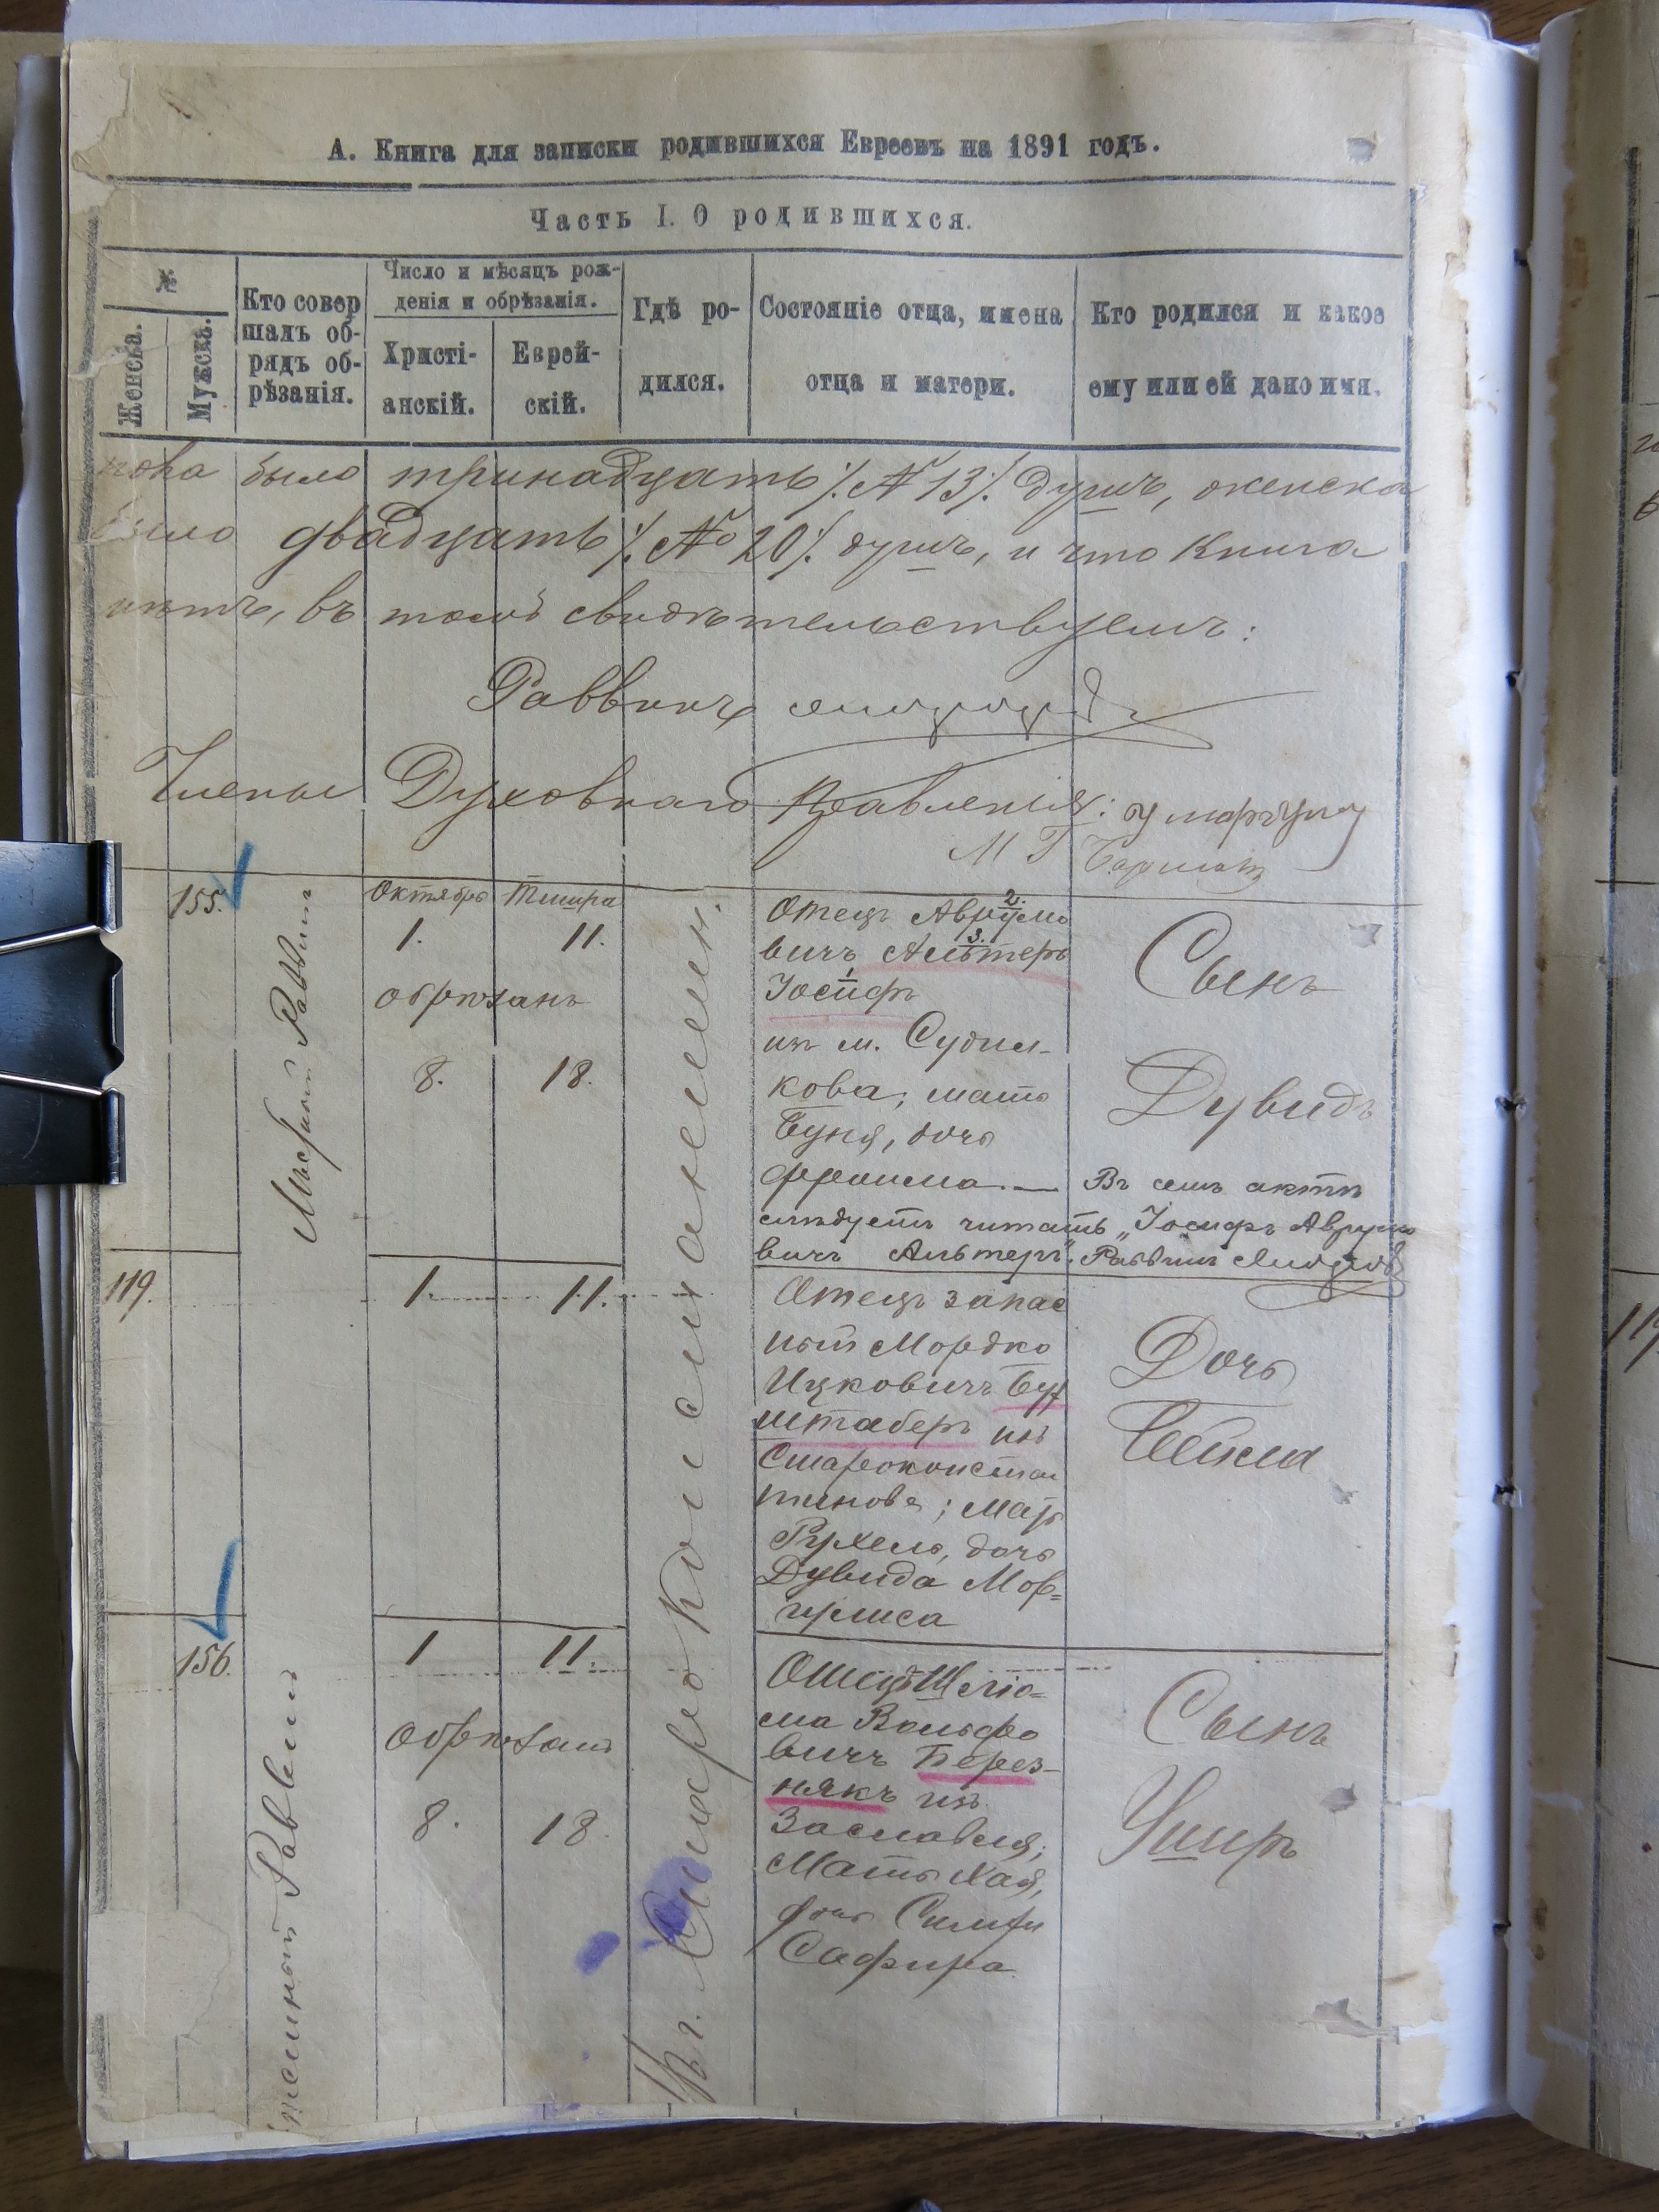 А. Книга для записки родившихся Евреевъ на 1891 годъ.
Часть I. О родившихся.
№
Женска.
Мужска.
Кто совер
шалъ об-
рядъ об-
рѣзанія.
Число и мѣсяцъ рож-
денія и обрѣзанія.
Христі-
анскій.
Еврей-
скій.
Гдѣ ро-
дился.
Состояніе отца, имена
отца и матери.
Кто родился и какое
ему или ей дано имя.
было тринадцать ./. № 13 ./. душъ, женска
было двадцать ./. № 20 ./. душъ, и что Книга
въ томъ свидѣтельствуемъ:
Раввинъ
Члены Духовнаго Правленія:
М Г
155.
Мѣстный Раввинъ
Октябрь Тишра
1. 11.
обрѣзанъ
8. 18.
Въ г. Староконстантинов
Отецъ Аврумо
2.
вичъ Альтеръ
3.
Іосифъ
1
изъ м. Судил-
кова, мать
Буня, дочь
Фроима. —
Сынъ
Дувидъ
Въ семъ актѣ
слѣдуетъ читать „Іосифъ Аврумо
вичъ Альтеръ". Раввинъ
119.
1. 11.
Отецъ запас
ный Мордко
Ицковичъ Бух
штаберъ изъ
Староконстан
тинова; мать
Рухель, дочь
Дувида Мор-
гулиса
Дочь
Бейла
156.
1 11.
Обрѣзанъ
8. 18.
Раввинъ
Отецъ Шлio-
ма Вольфо
вичъ Берез-
някъ изъ
Заславля;
Мать Хая,
дочь Симхи
Сафира
Сынъ
Ушеръ